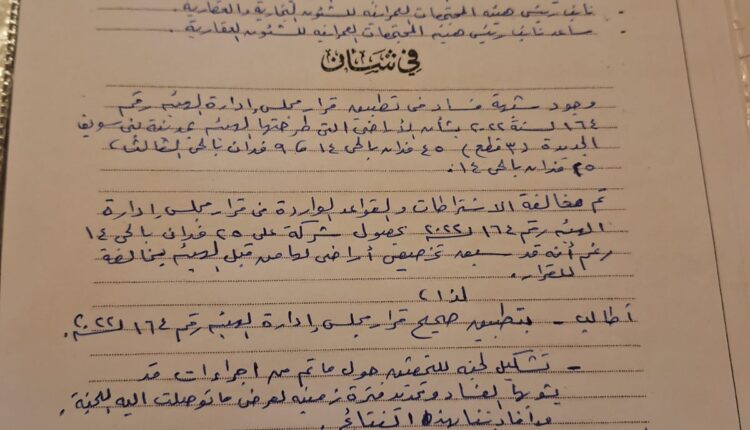 - نايف رئيس هيئة المجتمعات العمرانية للشئون التجارية والعقارية.
- مساعد نايب رئيس هيئة المجتمعات العمرانية للشئون العقارية.
في شأن
وجود شبهة فساد فى تطبيق قرار مجلس إدارة الهيئة رقم
١٦٤ لسنة ٢٠٢٢ بشأن الأراضي التى طرحتها الهيئة بمدينة بنى سويف
الجديدة (٣ قطع) ٤٥ فدان بالحى ١٤ و ٩ فدان بالحى الثالث و
٢٥ فدان بالحى ١٤.
تم مخالفة الاشتراطات والقواعد الواردة فى قرار مجلس إدارة
الهيئة رقم ١٦٤ لـ ٢٠٢٢ بحصول شركة على ٢٥ فدان بالحى ١٤
رغم أنه قد سبق تخصيص أراضى لها من قبل الهيئة بمخالفة
للقرار.
لذا
أطالب - بتطبيق صحيح قرار مجلس إدارة الهيئة رقم ١٦٤ لـ ٢٠٢٢.
- تشكيل لجنة للتحقيق حول ما تم من اجراءات قد
يشوبها الفساد وتحديد فترة زمنية لعرض ما توصلت اليه اللجنة
وأفادتنا بهذه النتائج.